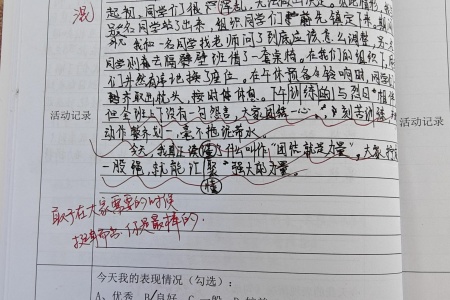 混
起初,同学们很
名同学站了出来,组织同学们 先镇定下来,
我和一名同学找老师问了到底应该怎么调整,另一名
同学则着去隔壁班借了一套桌椅。在我们的组织下,
们井然有序地换了座位。在午休预备铃响时,同学
都取出枕头,按时午休息。下午训练时与烈日“相伴
但全班上下没有一句怨言,大家团结一心,刻苦训练,
动作整齐划一,毫不拖泥带水。
今天,我真正读懂了什么叫作“团结就是力量”,大家拧成
一股绳,就能汇聚强大的力量。
懂
活动记录
活动记录
敢于在大家需要的时候
挺身而出,你是最棒的.
今天我的表现情况(勾选):
A、优秀 B、良好 C、一般 D、